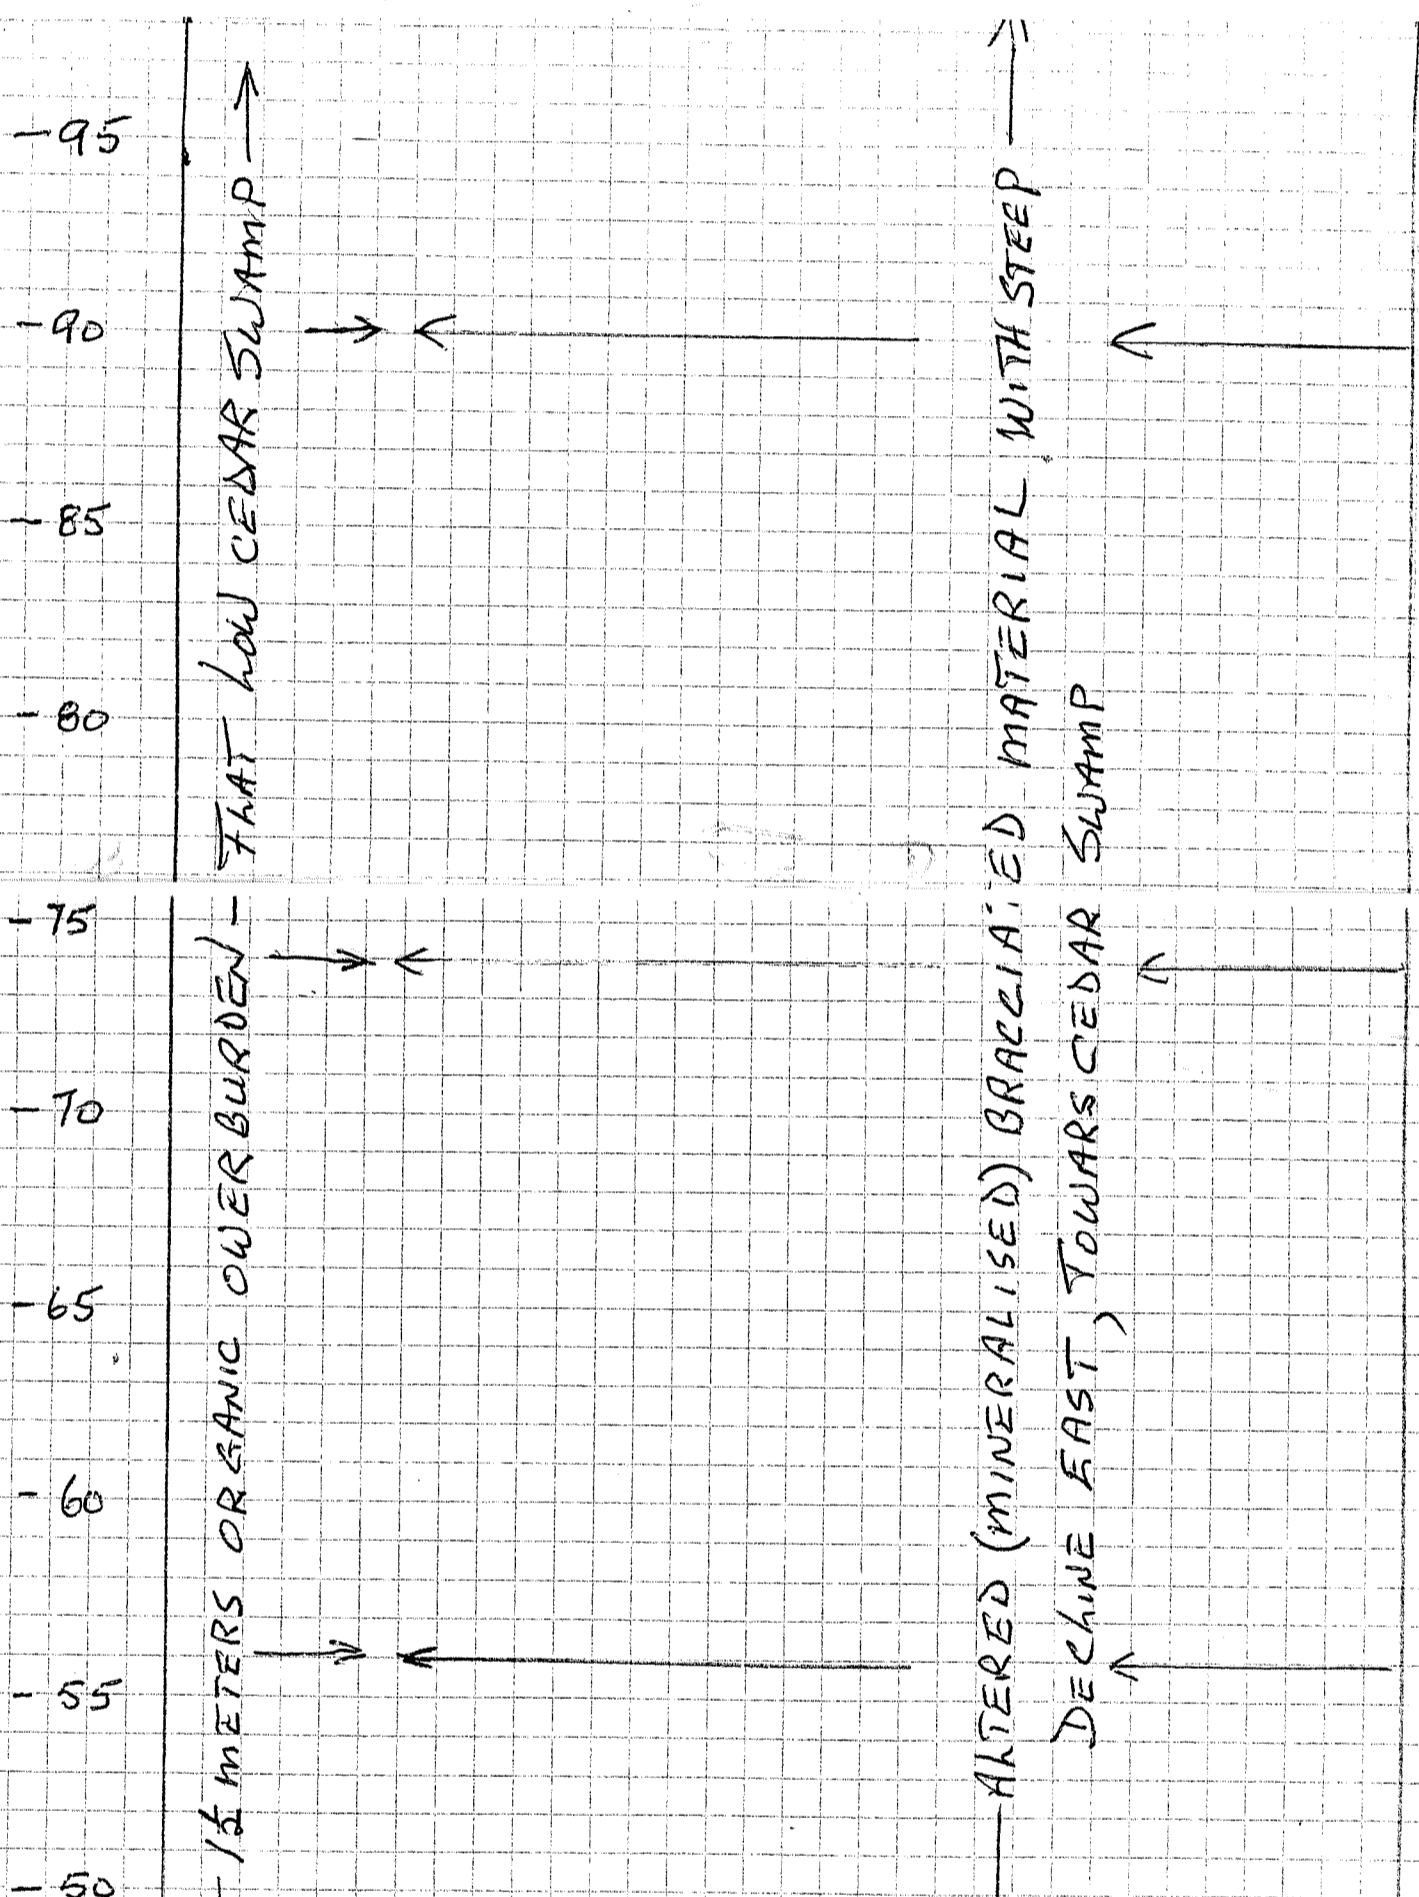 -95
-90
-85
-80
-75
-70
-65
-60
-55
-50
- 1½ METERS ORGANIC OWERBURDEN - FLAT LOW CEDAR SWAMP
ALTERED (MINERALISED) BRACCIATED MATERIAL WITH STEEP
DECLINE EAST, TOWARS CEDAR SWAMP